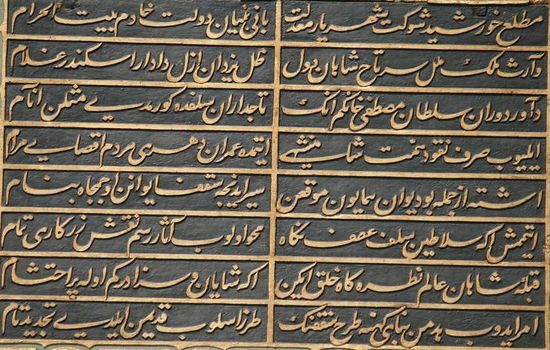 مطلع خورشید شوکت شهریار معدلت بانی بنیان دولت خادم بیت الحرام
وارث ملک ملل سرتاج شاهان دول ظل یزدان ازل دادار اسکندر غلام
داور دوران سلطان مصطفی خانکم انک تاجداران سلفده کورمدی مثلن انام
ایلیوب صرف نقود همت شاهنشهی ایتمده عمران دهری هردم اقصای مرام
اشته ازجمله بو دیوان همایون موقعن سیر ایدنجه سقف ایوانن او جمجاه بنام
ایتمش اکه سلاطین سلف عطف نکاه محو اولوب آثار رسم نقش زرکاری تمام
قبله شاهان عالم نظره کاه خلق ایکن اکه شایان و سزادر کم اوله پر احتشام
امر ایدوب هدمن بنای کهنه طرح سقفنک طرز اسلوب قدیمن ایلدی تجدید تام